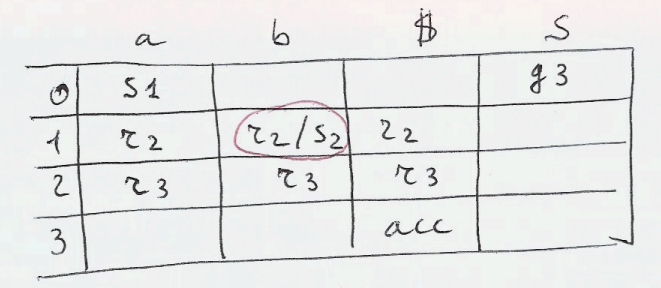 a b $ S
0 s1 g3
1 r2 r2/s2 r2
2 r3 r3 r3
3 acc